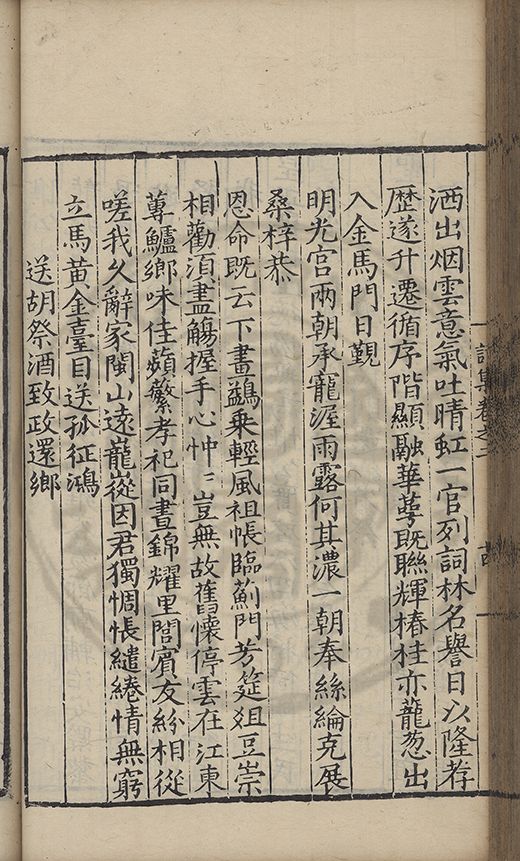 洒出烟雲意氣吐晴虹一官列詞林名譽日以隆荐
歷遂升遷循序階顯融華萼既聯輝椿桂亦蘢葱出
入金馬門日覲
明光宮兩朝承寵渥雨露何其濃一朝奉絲綸克展
桑梓恭
恩命既云下畫鷁乘輕風祖帳臨薊門芳筵爼豆崇
相勸湏盡觴握手心忡〻豈無故舊懷停雲在江東
蓴鱸鄉味佳蘋蘩孝祀同晝錦耀里閭賓友紛相從
嗟我久辭家閩山遠巃嵸因君獨惆悵繾綣情無窮
立馬黃金臺目送孤征鴻
送胡祭酒致政還鄉
詩集卷之二